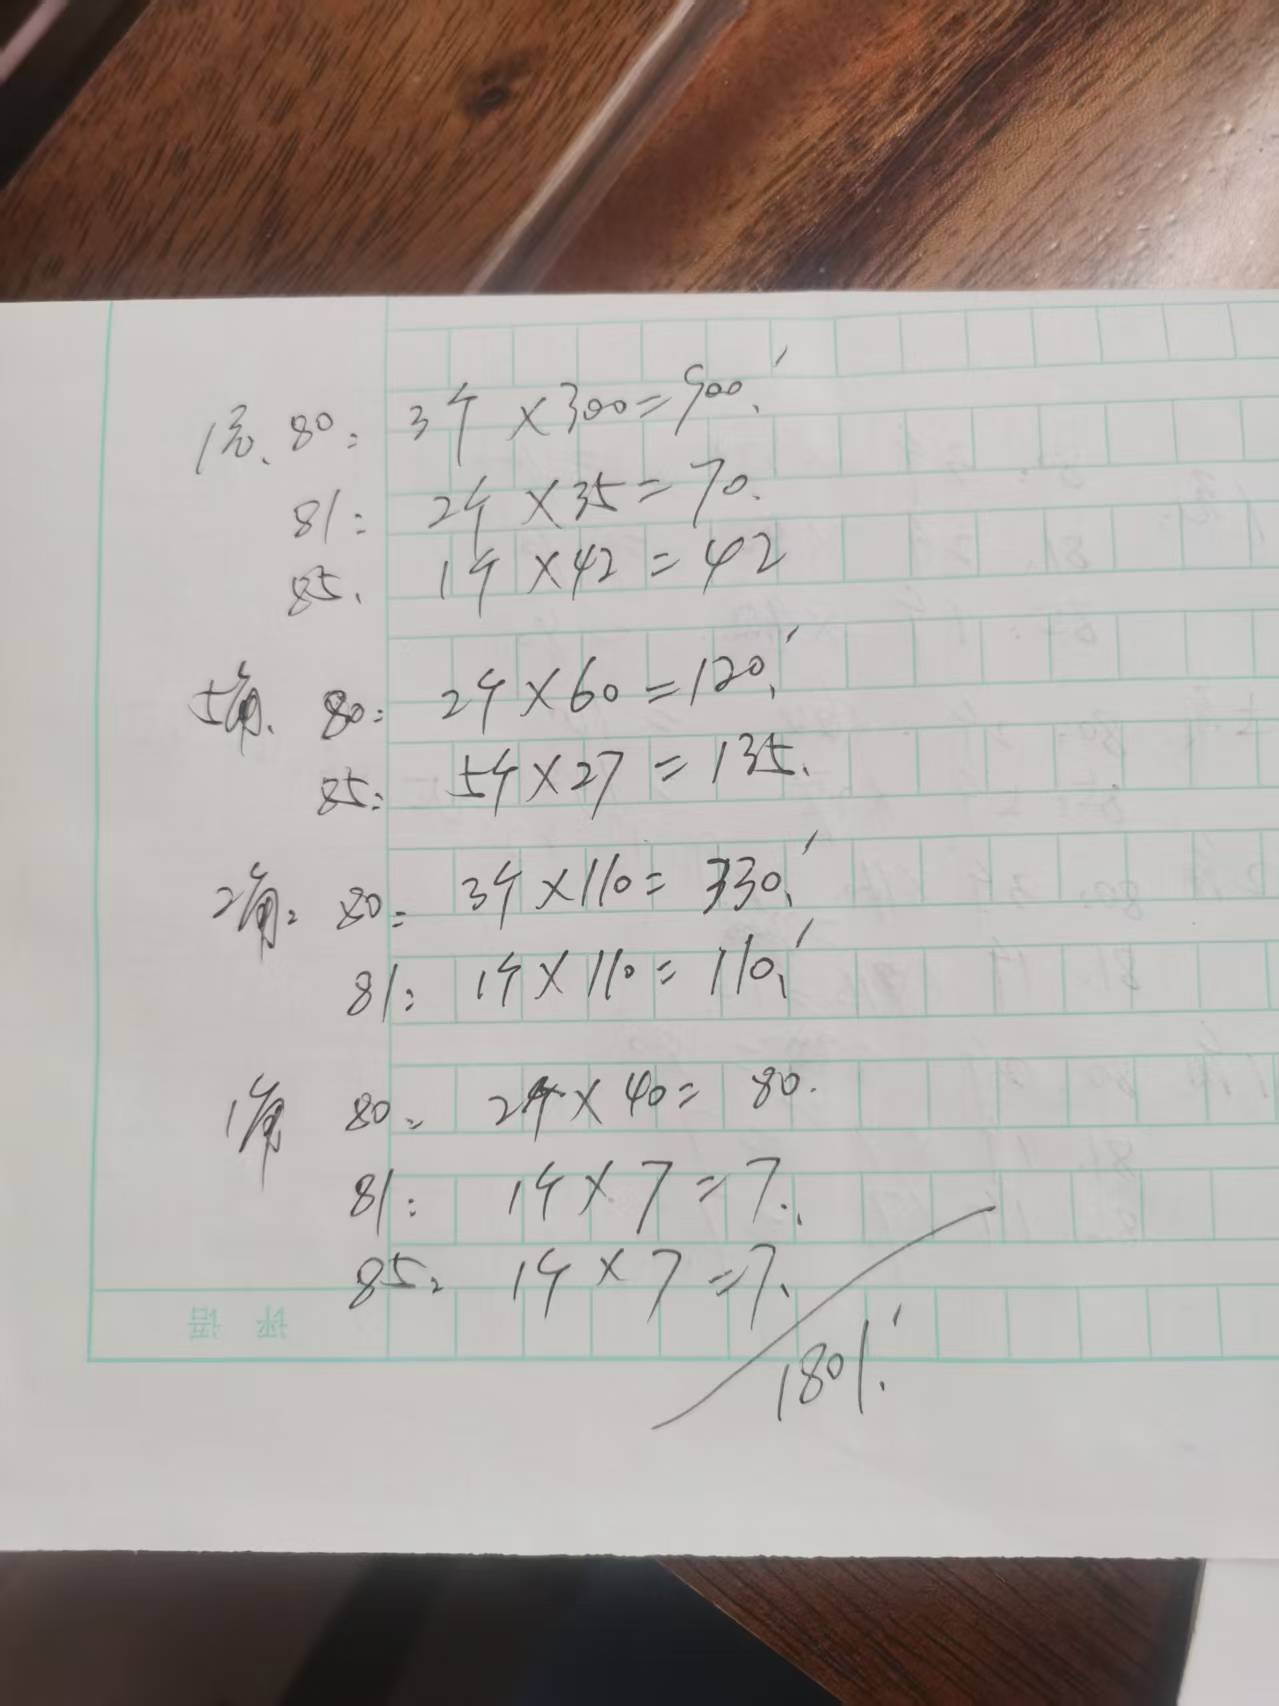 1元、80: 3个×300=900.
81: 2个×35=70.
85、 1个×42=42
5角、80: 2个×60=120.
85: 5个×27=135.
2角: 80: 3个×110=330.
81: 1个×110=110.
1角 80: 2个×40=80.
81: 1个×7=7.
85: 1个×7=7.
评语
1801.